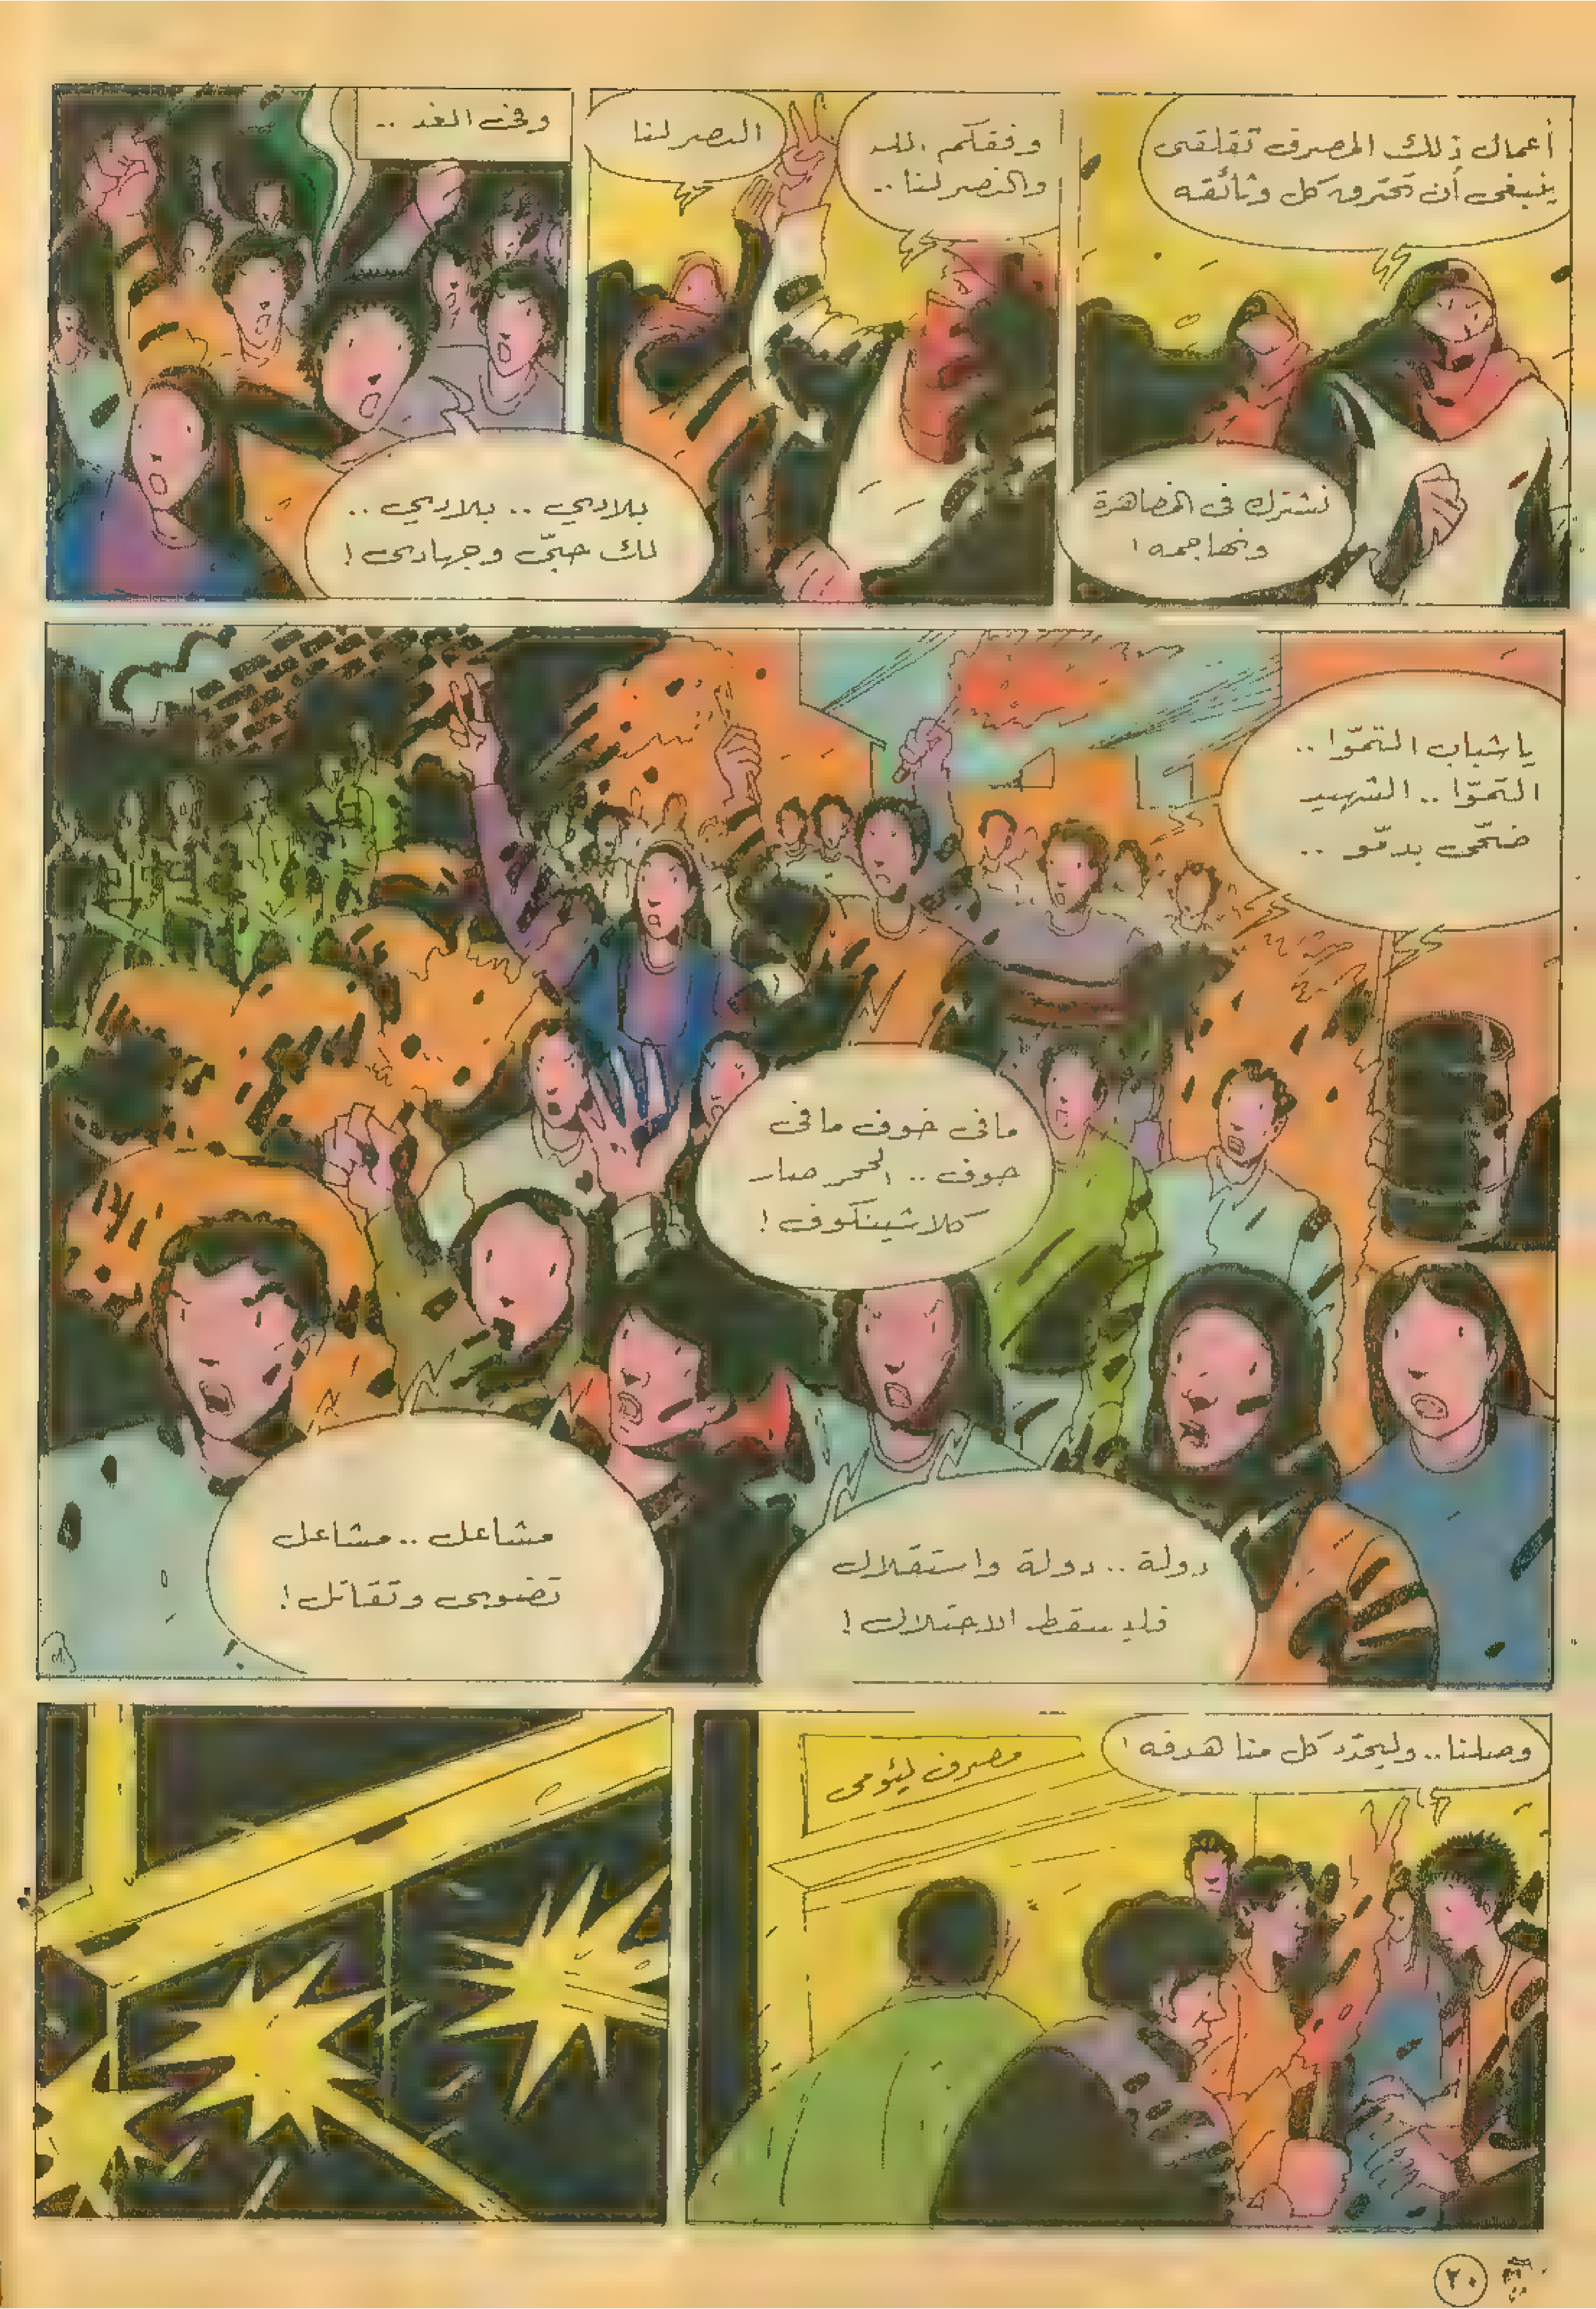 أعمال ذلك المصرف تقلقني
ينبغي أن تحترق كل وثائقه
نشترك في المضاهرة
ونهاجمه!
وفقكم الله
والنصر لنا..
النصر لنا
وفي الغد ..
بلادي .. بلادي ..
لك حبّي وجهادي!
يا شباب التمّوا ..
التمّوا .. الشهيد
ضحّى بدمّو ..
مافي خوف مافي
خوف .. الحجر صار
كلاشينكوف!
دولة .. دولة واستقلال
فليسقط الاحتلال!
مشاعل .. مشاعل
تضوي وتقاتل!
وصلنا.. وليحدّد كل منا هدفه!
مصرف ليئومي
٢٠